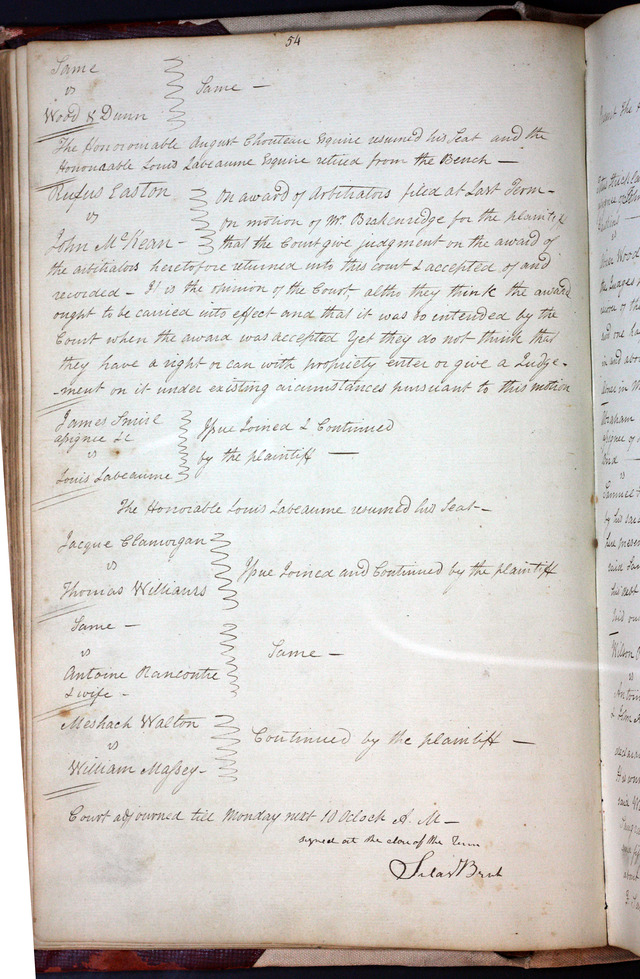 54
Same
vs
Wood & Dunn
Same —
The Honourable August Chouteau Esquire resumed his Seat and the
Honouaable Louis Labeaume Esquire retired from the Bench —
Rufus Easton
vs
John McKean -
On award of Arbitrators filed at Last Term -
on motion of Mr Brakenridge for the plaintiff
that the Court give judgment on the award of
the arbitrators heretofore returned into this court & accepted of and
recorded - It is the opinion of the Court, altho they think the award
ought to be carried into effect and that it was so intended by the
Court when the award was accepted Yet they do not think that
they have a right or can with propriety enter or give a Judge-
-ment on it under existing circumstances pursuant to this motion
James Smirl
assignee &c
vs
Louis Labeaume
Issue Joined & Continued
by the plaintiff —
The Honorable Louis Labeaume resumed his Seat -
Jacque Clamorgan
vs
Thomas Williams
Issue Joined and Continued by the plaintiff
Same -
vs
Antoine Rancontre
& wife -
Same -
Meshack Walton
vs
William Massey -
Continued by the plaintiff —
Court adjourned till Monday next 10 OClock A. M -
signed at the close of the Term
Silas Bent